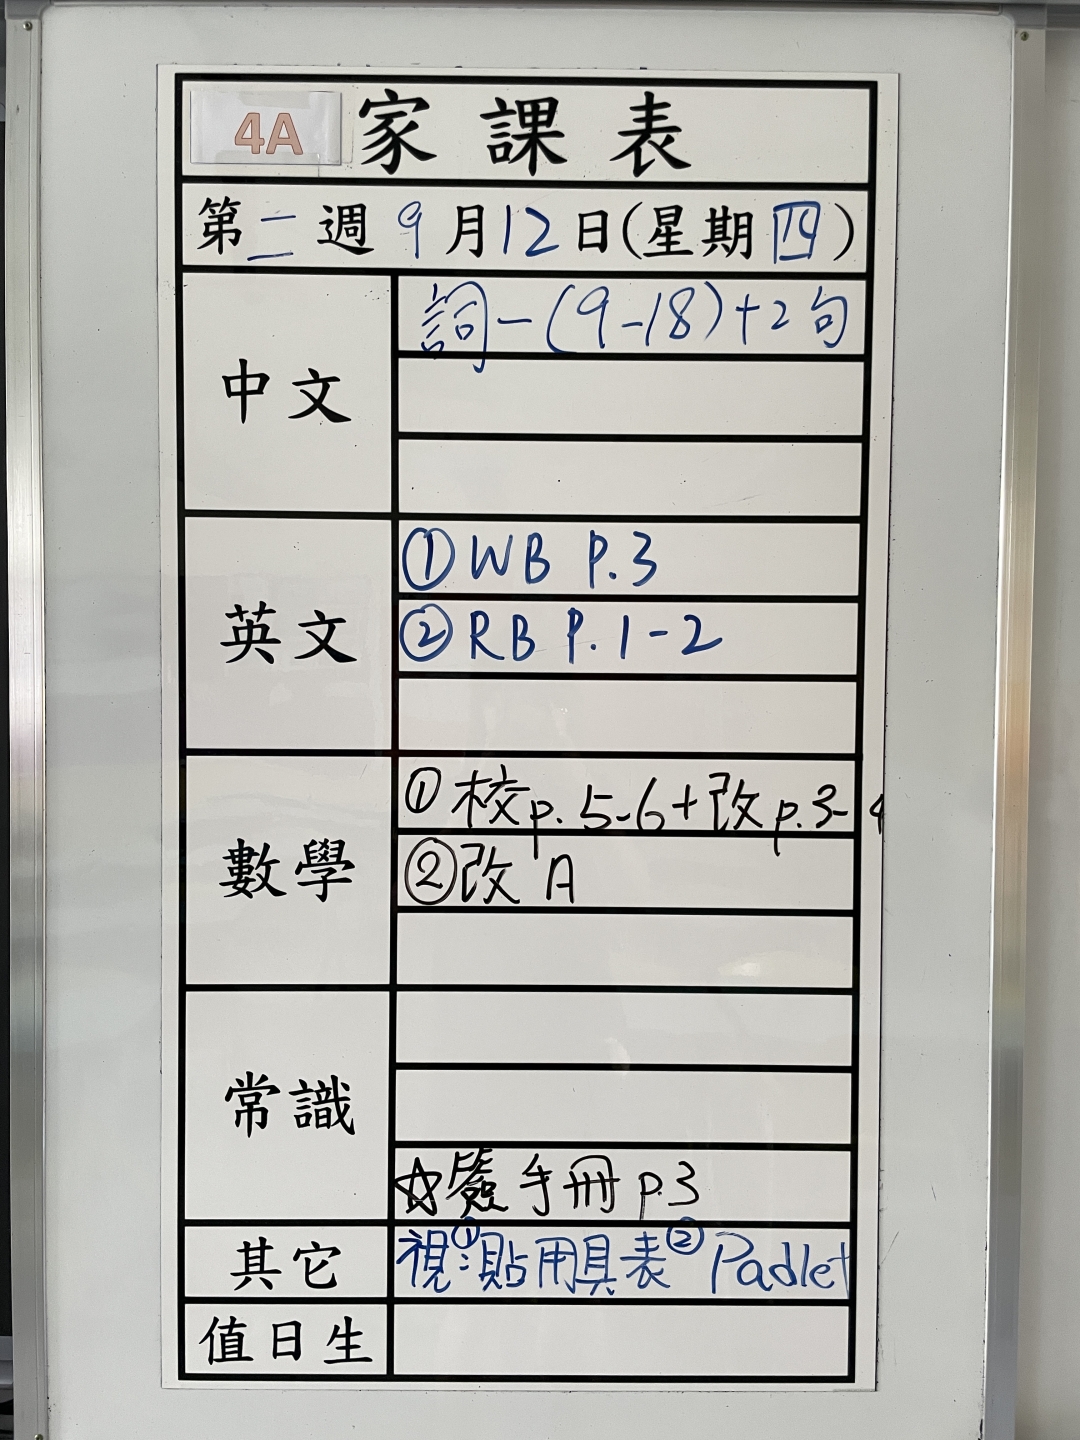 4A 家課表
第二週 9月12日(星期四)
中文
詞一(9-18)+2句
英文
①WB P.3
②RB P.1-2
數學
①校p.5-6+改p.3-4
②改A
常識
☆簽手冊 p.3
其它
視:①貼用具表②Padlet
值日生